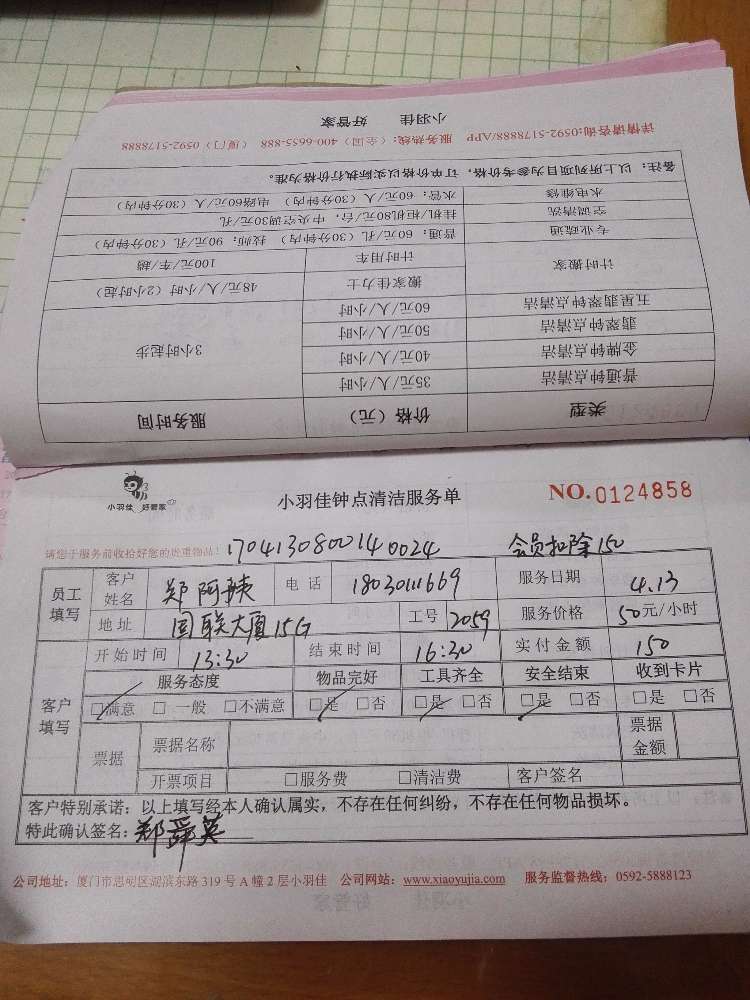 小羽佳 好管家
详情请咨询:0592-5178888/APP 服务热线:(全国)400-6655-888 (厦门)0592-5178888
备注:以上所列项目为参考价格,订单价格以实际执行价格为准。
水电维修 水管:60元/人(30分钟内) 电路60元/人(30分钟内)
空调清洗 挂机柜机80元/台,中央空调30元/孔
专业疏通 普通:60元/孔(30分钟内) 技师:90元/孔(30分钟内)
计时搬家 计时用车 100元/车/趟
搬家佳力士 48元/人/小时(2小时起)
五星翡翠钟点清洁 60元/人/小时
翡翠钟点清洁 50元/人/小时 3小时起步
金牌钟点清洁 40元/人/小时
普通钟点清洁 35元/人/小时
类型 价格(元) 服务时间
小羽佳 好管家
小羽佳钟点清洁服务单 NO.0124858
请您于服务前收拾好您的贵重物品! 170413080014 0024 会员扣除150
员工填写 客户姓名 郑阿 电话 18030111669 服务日期 4.13
地址 国联大厦15G 工号 2059 服务价格 50元/小时
开始时间 13:30 结束时间 16:30 实付金额 150
客户填写 服务态度 物品完好 工具齐全 安全结束 收到卡片
□满意 □一般 □不满意 □是 □否 □是 □否 □是 □否 □是 □否
票据 票据名称 票据金额
开票项目 □服务费 □清洁费 客户签名
客户特别承诺:以上填写经本人确认属实,不存在任何纠纷,不存在任何物品损坏。
特此确认签名:郑舜英
公司地址:厦门市思明区湖滨东路319号A幢2层小羽佳 公司网站:www.xiaoyujia.com 服务监督热线:0592-5888123